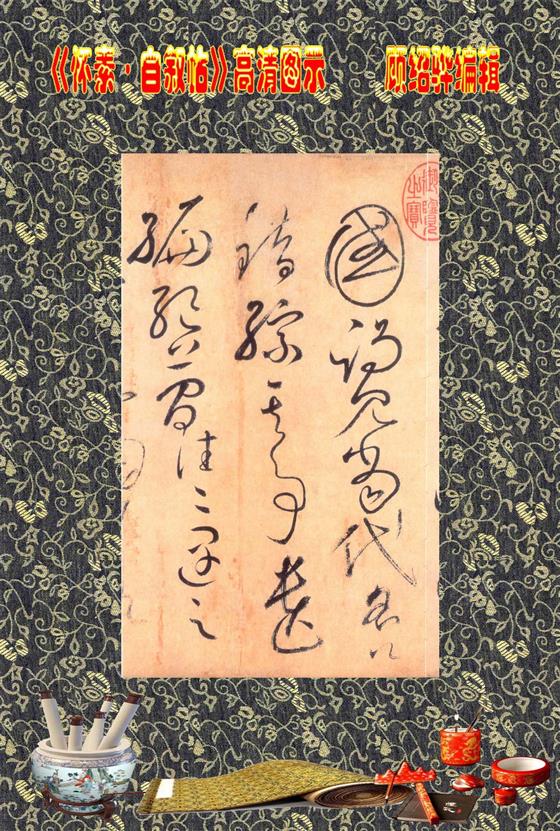 《怀素·自叙帖》高清图示 顾绍骅编辑
國謁見當代名公
錯綜其事遺
編絕簡往往遇之
御覽
之寶